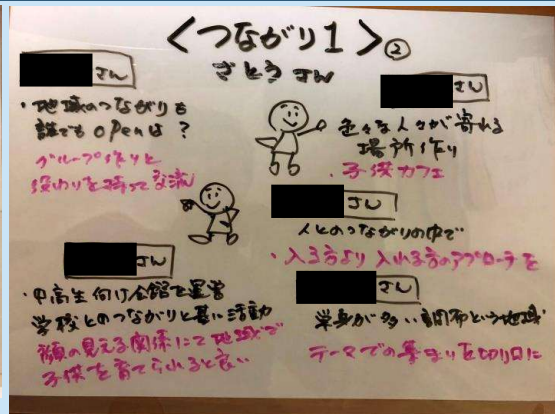 <つながり1>②
さとうさん
さん
・地域のつながりも
誰でもopenは？
グループ作りと
役わりを持って交流
さん
色々な人々が寄れる
場所作り
・子供カフェ
さん
人とのつながりの中で
・入る方より入れる方のアプローチを
さん
・中高生向け会館を運営
学校とのつながりと基に活動
顔の見える関係にて地域で
子供を育てられると良い
さん
単身が多い調布という地域
テーマでの集まりを切り口に